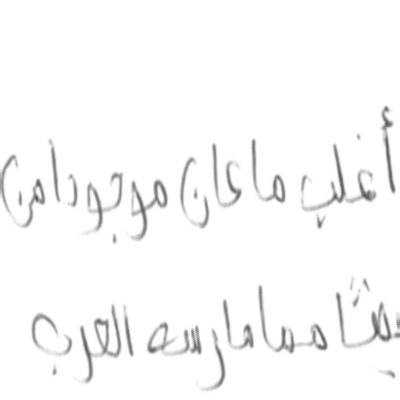 أغلب ما كان موجودا من
مما مارسه العرب